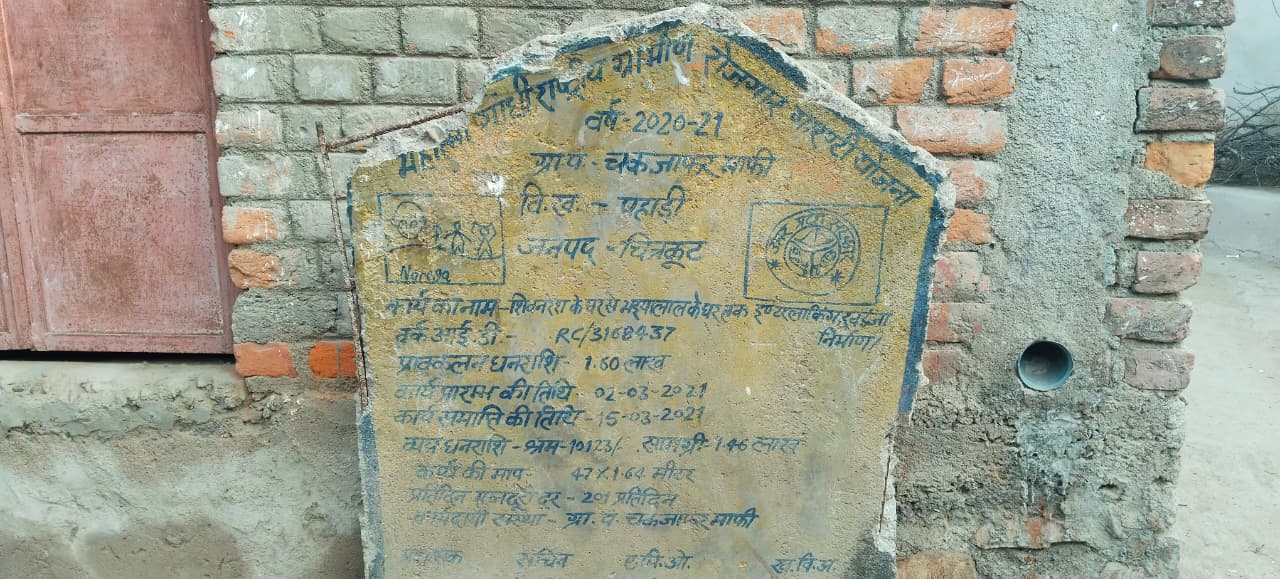 महात्मा गांधी राष्ट्रीय ग्रामीण रोजगार गारन्टी योजना
वर्ष-2020-21
ग्रा.पं.-चकजाफर माफी
वि.ख. - पहाड़ी
जनपद - चित्रकूट
Narega
उत्तर प्रदेश सरकार
कार्य का नाम - शिवनरेश के घर से भइयालाल के घर तक इण्टरलाकिंग
निर्माण/
वर्क आई.डी.- RC/3168437
प्राक्कलन धनराशि- 1.60 लाख
कार्य प्रारम्भ की तिथि- 02-03-2021
कार्य समाप्ति की तिथि- 15-03-2021
व्यय धनराशि-श्रम-10123/. सामग्री- 1.46 लाख
कार्य की माप- 47 X 1.64 मीटर
प्रतिदिन मजदूरी दर - 201 प्रतिदिन
कार्यदायी संस्था- ग्रा. पं. चकजाफर माफी
सचिव ख.वि.अ.